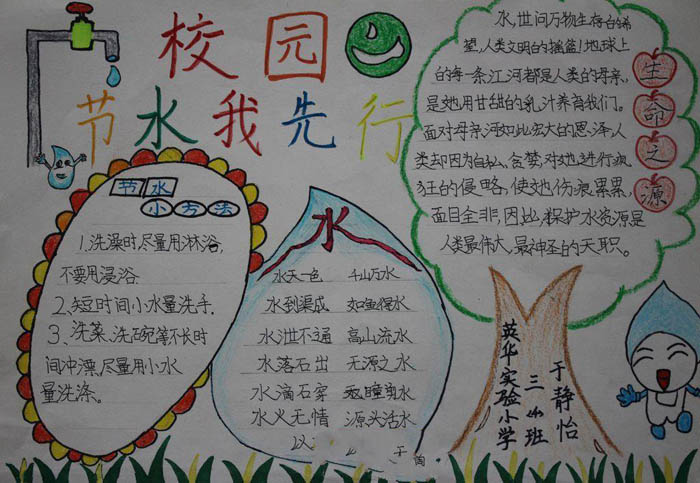 校园
节水我先行
节水
小方法
1.洗澡时,尽量用淋浴,
不要用浸浴.
2、短时间小水量洗手.
3、洗菜、洗碗筷不长时
间冲漂,尽量用小水
量洗涤。
水
水天一色 千山万水
水到渠成 如鱼得水
水泄不通 高山流水
水落石出 无源之水
水滴石穿
水火无情 源头活水
水,世间万物生存的希
望,人类文明的摇篮!地球上
的每一条江河都是人类的母亲,
是她用甘甜的乳汁养育我们。
面对母亲河如此宏大的恩泽,人
类却因为自私、贪婪,对她进行疯
狂的侵略,使她伤痕累累,
面目全非,因此,保护水资源是
人类最伟大、最神圣的天职。
生命之源
英华实验小学
三 班
于静怡